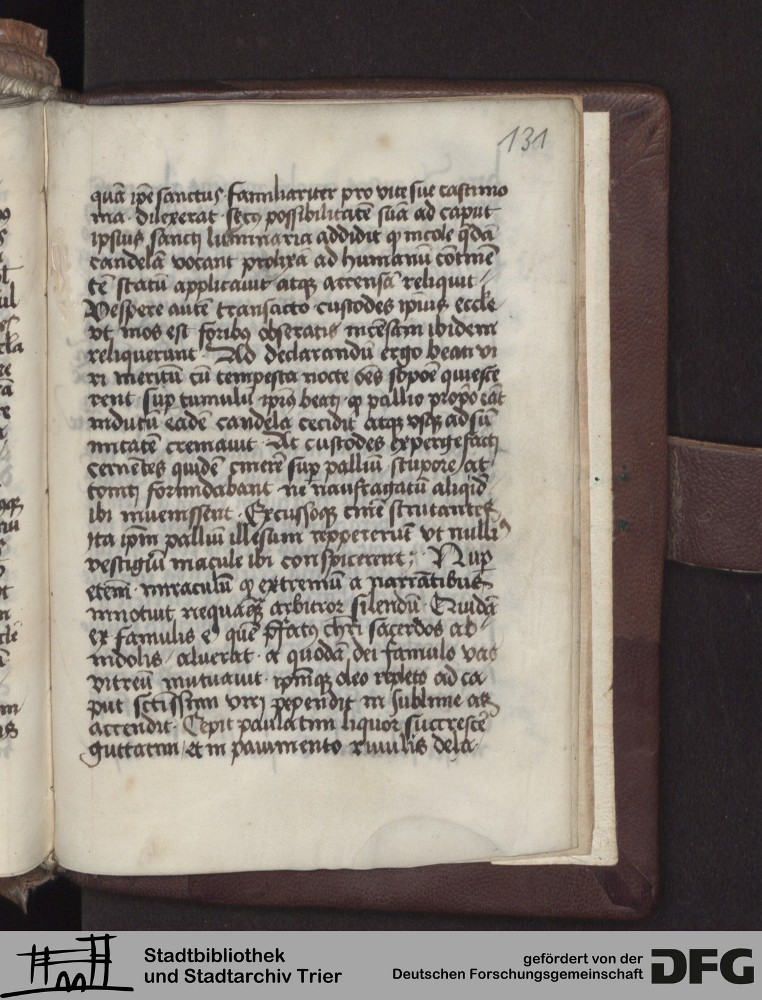 131
quā ip̄e sanctus familiariter pro vite sue castimo
nia · dilexerat · sec̄ possibilitatē suā ad caput
ipsius sancti luminaria addidit q̄ incole q̄dā
candelā vocant prolixā ad humanū cōtinē
tē statū applicauit atq̨ accensā reliquit ·
Vespere autē transacto custodes ip̄ius eccle
vt mos est foribꝫ obseratis incēsam ibidem
reliquerunt · Ad declarandū ergo beati vi
ri meritū cū tempesta nocte oēs sopore quiesce
rent sup̄ tumulū ip̄ius beati q̄ pallio p̄opō eāt
indutū eadē candela cecidit atq̨ vsq̨ ad sū
mitatē cremauit · At custodes expergefacti
cernētes quidē cinerē sup̄ palliū stupore at
toniti formidabant ne naufragatū aliqid
ibi inuenissent · Excussoq̨ cinē scrutantes
Ita ip̄m palliū illesum reppererūt vt nulliꝰ
vestigiū macule ibi conspicerent ; Nup̄
etem̄ · miraculū q̄ extremū a narrātibus
innotuit nequaq̄ arbitror silendū · Quidā
ex famulis eꝰ quē p̄fatꝰ chr̄i sacerdos ab
indolis · aluerat · a quodā dei famulo vas
vitreū mutuauit · ip̄mq̨ oleo repleto ad ca
put sc̄tissimi viri pependit in sublime atq̨
accendit · Cepit paulatim liquor succresce
guttatim · et in pauimento riuulis dela
Stadtbibliothek
und Stadtarchiv Trier
gefördert von der
Deutschen Forschungsgemeinschaft
DFG